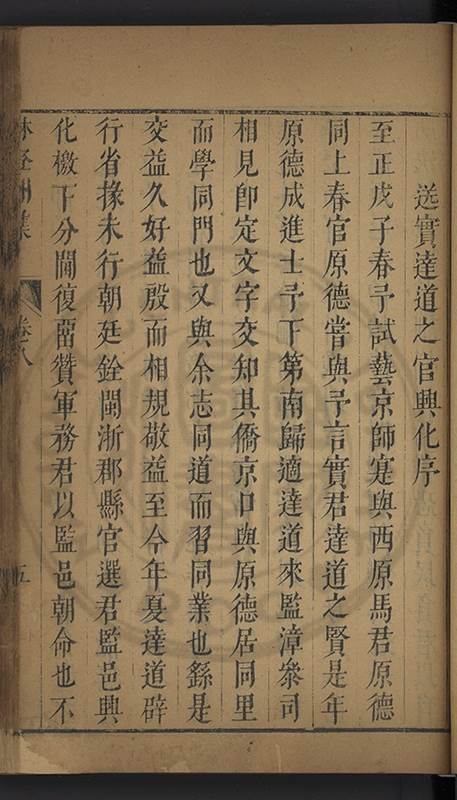 送實達道之官興化序
至正戊子春予試藝京師寔與西原馬君原德
同上春官原德嘗與予言實君達道之賢是年
原德成進士予下第南歸適達道來監漳叅司
相見卽定文字交知其僑京口與原德居同里
而學同門也又與余志同道而習同業也繇是
交益久好益殷而相規敬益至今年夏達道辟
行省掾未行朝廷銓閩浙郡縣官選君監邑興
化檄下分閫復畱贊軍務君以監邑朝命也不
卷八
五